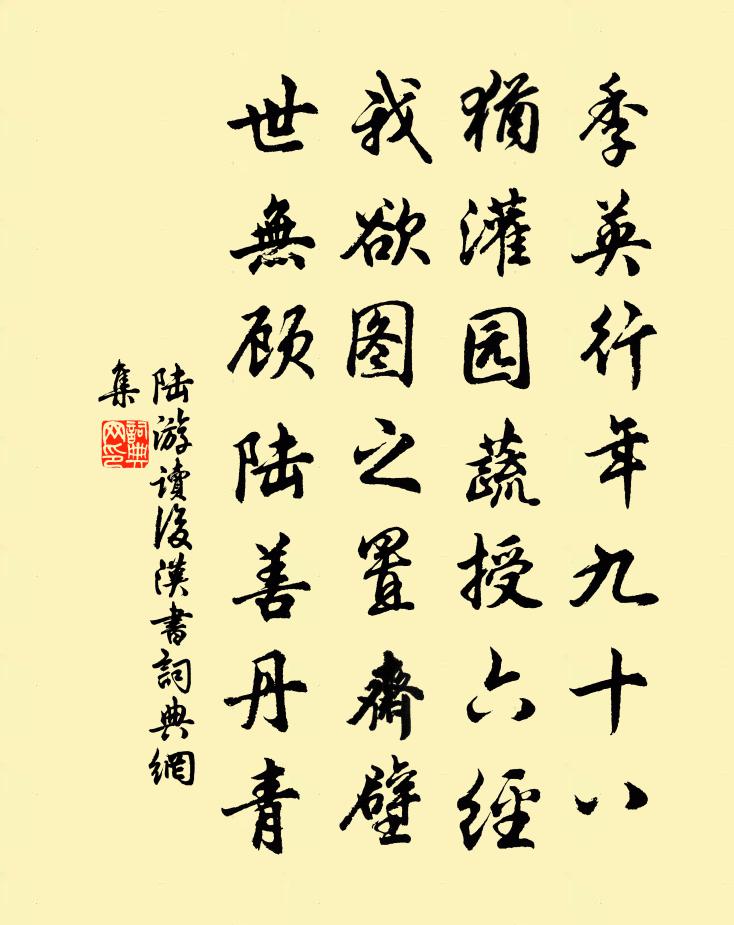 季英行年九十八
猶灌园蔬授六經
我欲图之置齋壁
世無顾陆善丹青
陆游讀後漢書詞典網
集
詞典网印